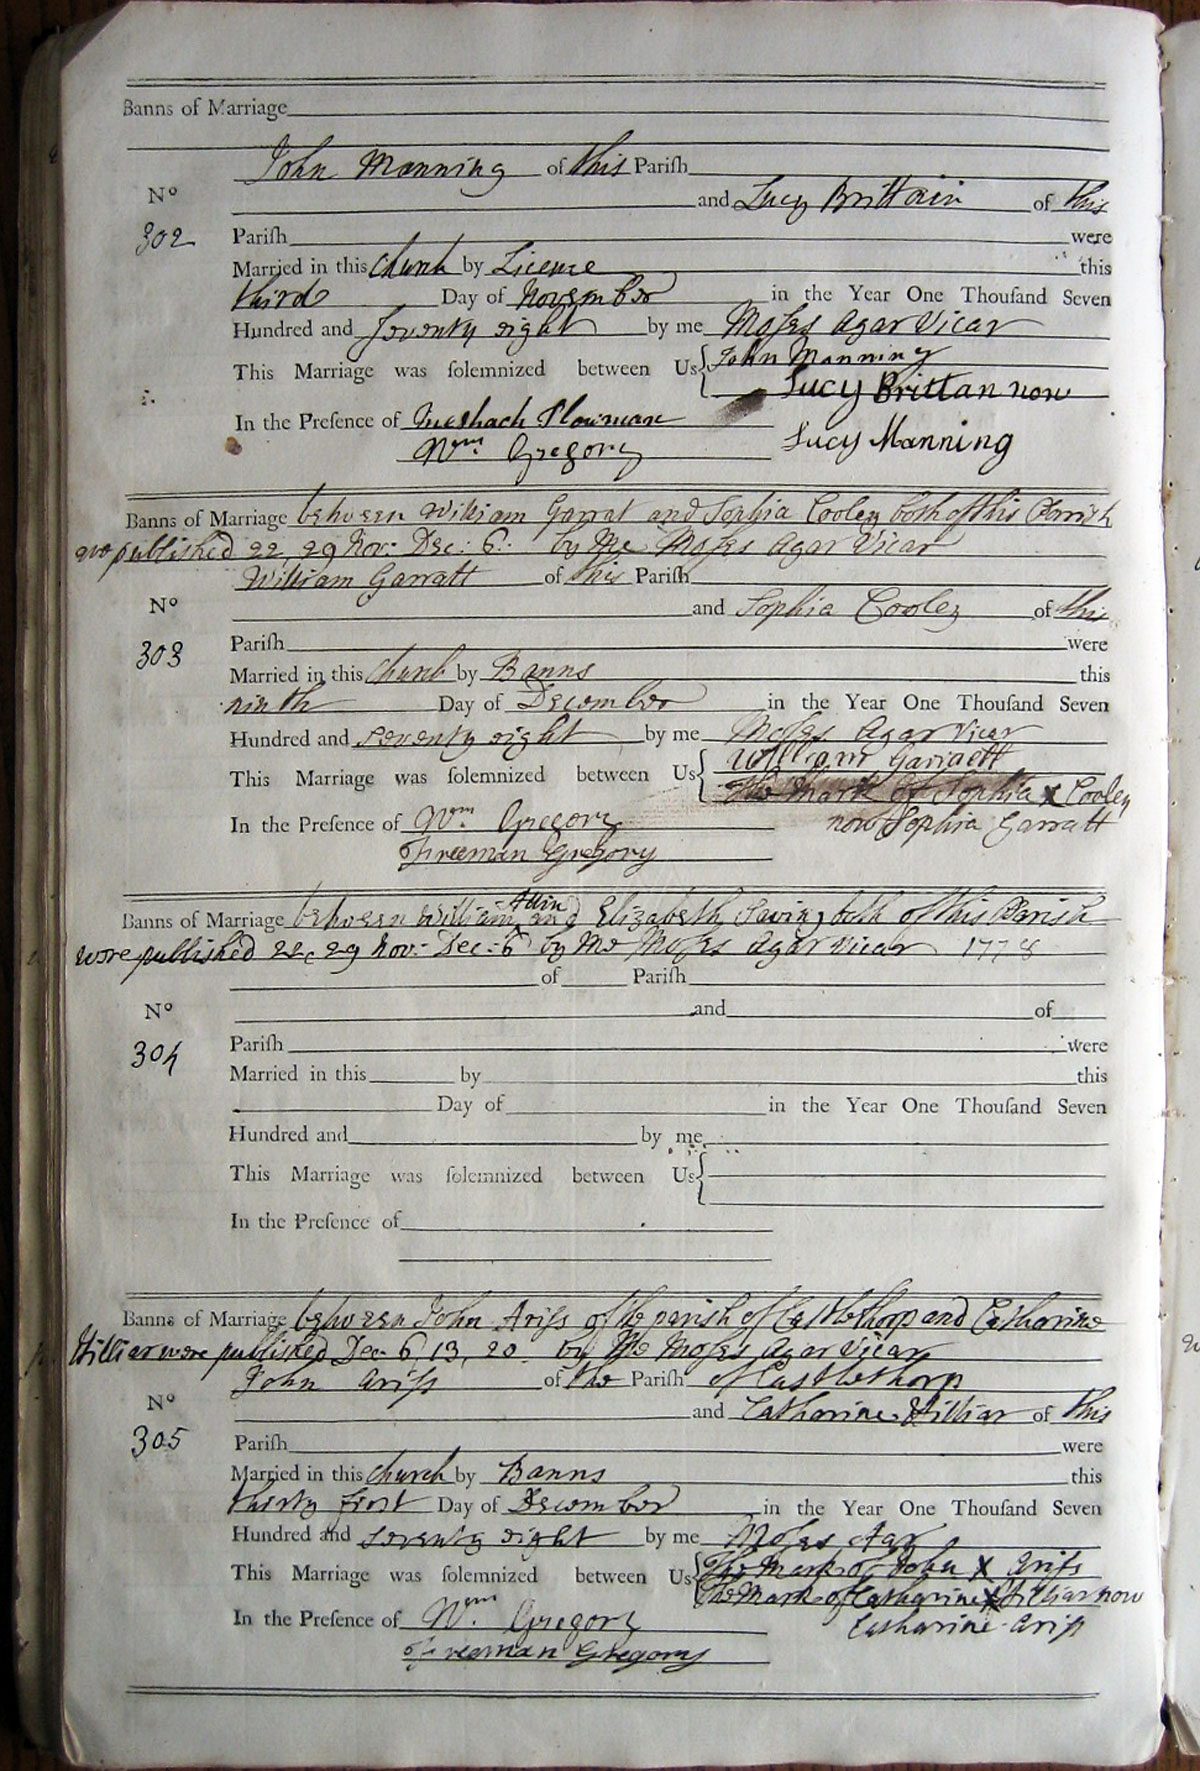 Banns of Marriage
John Manning of this Pariſh
Nº and Lucy Brittain of this
302 Pariſh were
Married in this church by Licence this
third Day of November in the Year One Thouſand Seven
Hundred and ſeventy eight by me Moſes Agar Vicar
This Marriage was ſolemnized between Us John Manning
Lucy Brittan now
In the Preſence of Meshach Plowman
Wm. Gregory Lucy Manning
Banns of Marriage between William Garrat and Sophia Cooley both of this Parish
published 22, 29 Nov: Dec: 6: by Me Moſes Agar Vicar
William Garratt of this Pariſh
Nº and Sophia Cooley of this
303 Pariſh were
Married in this church by Banns this
ninth Day of December in the Year One Thouſand Seven
Hundred and seventy eight by me Moſes Agar Vicar
This Marriage was ſolemnized between Us William Garratt
The Mark of Sophia X Cooley
In the Preſence of Wm. Gregory now Sophia Garratt
Freeman Gregory
Banns of Marriage between William and Elizabeth both of this Parish
were published 22, 29 Nov: Dec: 6 by Me Moſes Agar Vicar 1778
of Pariſh
Nº and of
304 Pariſh were
Married in this by this
Day of in the Year One Thouſand Seven
Hundred and by me
This Marriage was ſolemnized between Us
In the Preſence of
Banns of Marriage between John Ariſs of the parish of Castlethorp and Catharine
Hilliar were published Dec: 6, 13, 20 by Me Moſes Agar Vicar
John Ariſs of the Pariſh of Castlethorp
Nº and Catharine Hilliar of this
305 Pariſh were
Married in this church by Banns this
thirty first Day of December in the Year One Thouſand Seven
Hundred and seventy eight by me Moſes Agar
This Marriage was ſolemnized between Us The Mark of John X Ariſs
The Mark of Catharine X Hilliar now
In the Preſence of Wm. Gregory Catharine Ariſs
Freeman Gregory